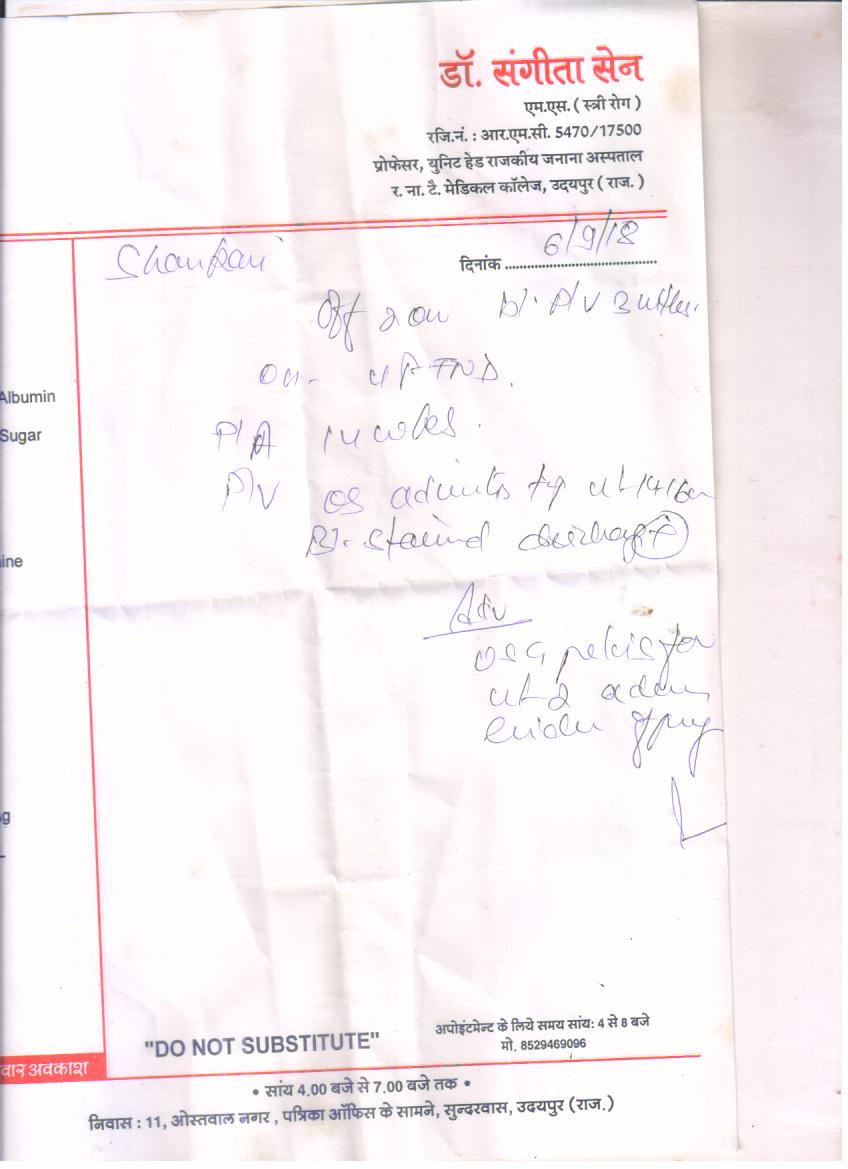 डॉ. संगीता सेन
एम.एस. ( स्त्री रोग )
रजि.नं. : आर.एम.सी. 5470/17500
प्रोफेसर, युनिट हेड राजकीय जनाना अस्पताल
र. ना. टै. मेडिकल कॉलेज, उदयपुर ( राज. )
दिनांक 6/9/18
Off & on Bl. P/V 3
Albumin
Sugar
P/A 14 wks.
P/V os admits tip ut 14-16
Bl. stained discharge +
ine
Adv
USG pelvis for
ut &
g
"DO NOT SUBSTITUTE"
अपोइंटमेन्ट के लिये समय सांय: 4 से 8 बजे
मो. 8529469096
वार अवकाश
• सांय 4.00 बजे से 7.00 बजे तक •
निवास : 11, ओस्तवाल नगर , पत्रिका ऑफिस के सामने, सुन्दरवास, उदयपुर (राज.)